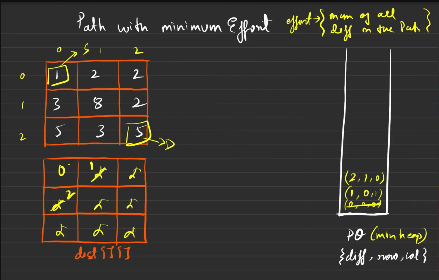 Path with minimum Effort
effort → { max of all diff in the Path }
0 S 1 2
0 1 2 2
1 3 8 2
2 5 3 5
D
0 1 ∞
∞ 2 ∞ ∞
∞ ∞ ∞
dist[][]
(2, 1, 0)
(1, 0, 1)
(0, 0, 0)
PQ (min heap)
{diff, row, col}